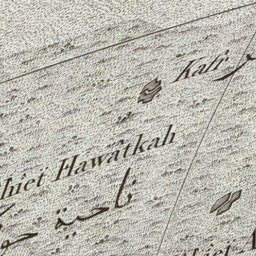 Kafr
hiet Hawatkah
ناحية حو
hiet A